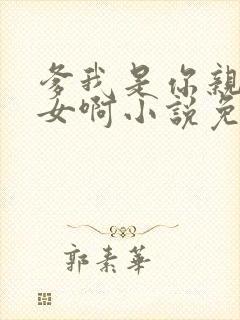 爹我是你親
女啊小說免
郭素華